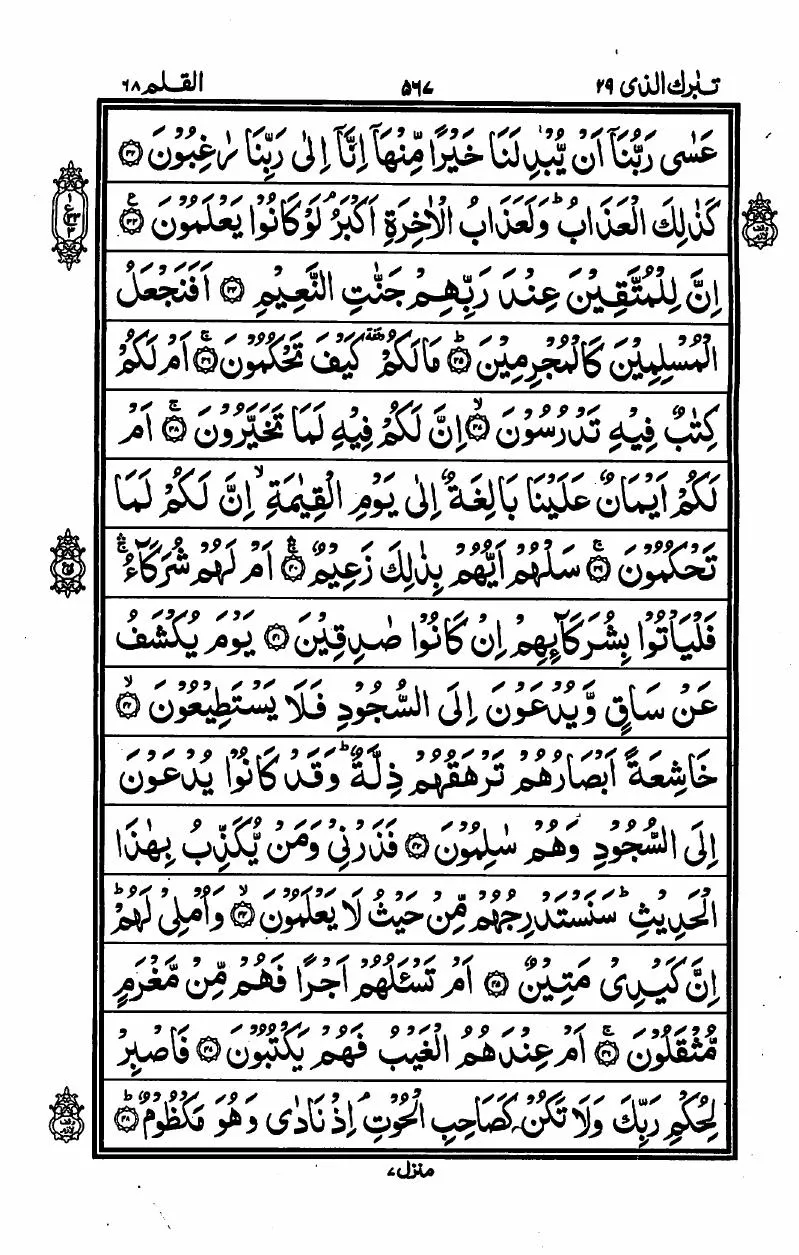 تبٰرك الذی ۲۹ ۵۶۷ القلم ۶۸
عَسٰى رَبُّنَاۤ اَنْ يُّبْدِلَنَا خَيْرًا مِّنْهَاۤ اِنَّاۤ اِلٰى رَبِّنَا رٰغِبُوْنَ ﴿۳۲﴾
كَذٰلِكَ الْعَذَابُ ؕ وَلَعَذَابُ الْاٰخِرَةِ اَكْبَرُ ۘ لَوْ كَانُوْا يَعْلَمُوْنَ ﴿۳۳﴾ ع
اِنَّ لِلْمُتَّقِيْنَ عِنْدَ رَبِّهِمْ جَنّٰتِ النَّعِيْمِ ﴿۳۴﴾ اَفَنَجْعَلُ
الْمُسْلِمِيْنَ كَالْمُجْرِمِيْنَ ؕ﴿۳۵﴾ مَا لَكُمْ وقفة كَيْفَ تَحْكُمُوْنَ ۚ﴿۳۶﴾ اَمْ لَكُمْ
كِتٰبٌ فِيْهِ تَدْرُسُوْنَ ۙ﴿۳۷﴾ اِنَّ لَكُمْ فِيْهِ لَمَا تَخَيَّرُوْنَ ۚ﴿۳۸﴾ اَمْ
لَكُمْ اَيْمَانٌ عَلَيْنَا بَالِغَةٌ اِلٰى يَوْمِ الْقِيٰمَةِ ۙ اِنَّ لَكُمْ لَمَا
تَحْكُمُوْنَ ۚ﴿۳۹﴾ سَلْهُمْ اَيُّهُمْ بِذٰلِكَ زَعِيْمٌ ۚۛ﴿۴۰﴾ اَمْ لَهُمْ شُرَكَآءُ ۚۛ
فَلْيَاْتُوْا بِشُرَكَآئِهِمْ اِنْ كَانُوْا صٰدِقِيْنَ ﴿۴۱﴾ يَوْمَ يُكْشَفُ
عَنْ سَاقٍ وَّيُدْعَوْنَ اِلَى السُّجُوْدِ فَلَا يَسْتَطِيْعُوْنَ ۙ﴿۴۲﴾
خَاشِعَةً اَبْصَارُهُمْ تَرْهَقُهُمْ ذِلَّةٌ ؕ وَقَدْ كَانُوْا يُدْعَوْنَ
اِلَى السُّجُوْدِ وَهُمْ سٰلِمُوْنَ ﴿۴۳﴾ فَذَرْنِىْ وَمَنْ يُّكَذِّبُ بِهٰذَا
الْحَدِيْثِ ؕ سَنَسْتَدْرِجُهُمْ مِّنْ حَيْثُ لَا يَعْلَمُوْنَ ۙ﴿۴۴﴾ وَاُمْلِىْ لَهُمْ ؕ
اِنَّ كَيْدِىْ مَتِيْنٌ ﴿۴۵﴾ اَمْ تَسْـَٔلُهُمْ اَجْرًا فَهُمْ مِّنْ مَّغْرَمٍ
مُّثْقَلُوْنَ ۚ﴿۴۶﴾ اَمْ عِنْدَهُمُ الْغَيْبُ فَهُمْ يَكْتُبُوْنَ ﴿۴۷﴾ فَاصْبِرْ
لِحُكْمِ رَبِّكَ وَلَا تَكُنْ كَصَاحِبِ الْحُوْتِ ۘ اِذْ نَادٰى وَهُوَ مَكْظُوْمٌ ؕ﴿۴۸﴾
منزل ۷